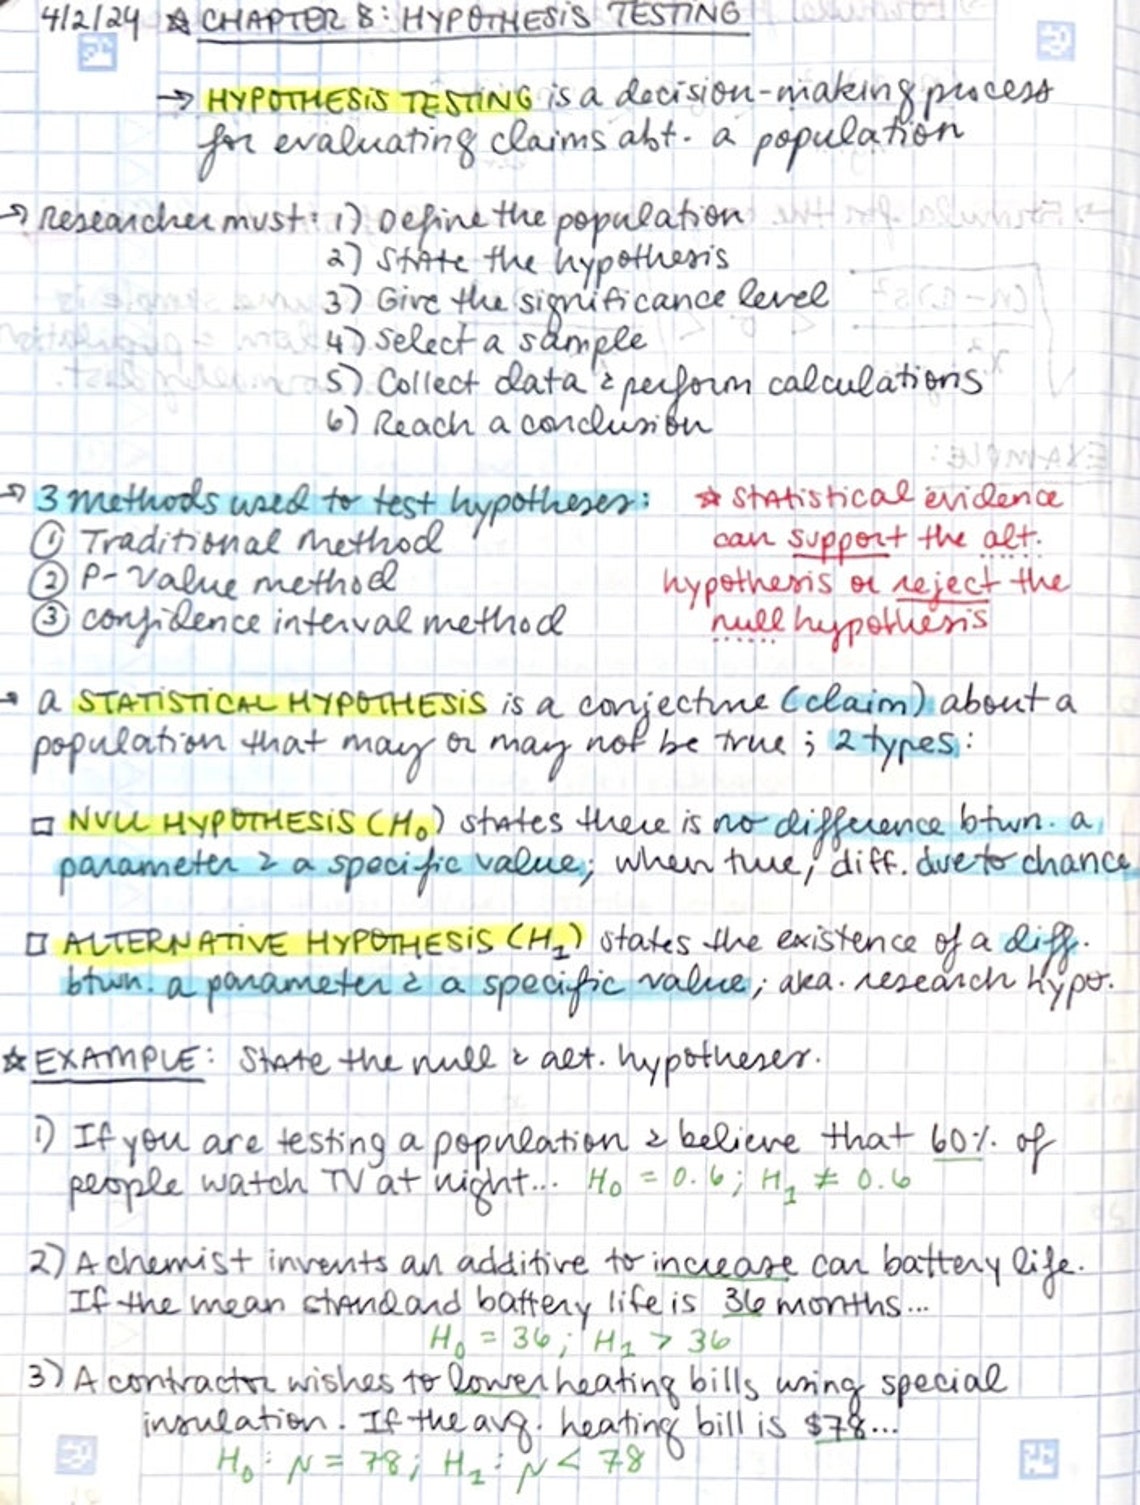 4/2/24 ☆ CHAPTER 8: HYPOTHESIS TESTING
→ HYPOTHESIS TESTING is a decision-making process
for evaluating claims abt. a population
→ Researcher must: 1) Define the population
2) State the hypothesis
3) Give the significance level
4) Select a sample
5) Collect data & perform calculations
6) Reach a conclusion
→ 3 methods used to test hypotheses:
① Traditional method
② P-Value method
③ confidence interval method
☆ Statistical evidence
can support the alt.
hypothesis or reject the
null hypothesis
→ a STATISTICAL HYPOTHESIS is a conjecture (claim) about a
population that may or may not be true; 2 types:
□ NULL HYPOTHESIS (H₀) states there is no difference btwn. a
parameter & a specific value; when true, diff. due to chance
□ ALTERNATIVE HYPOTHESIS (H₁) states the existence of a diff.
btwn. a parameter & a specific value; aka. research hypo.
☆ EXAMPLE: State the null & alt. hypotheses.
1) If you are testing a population & believe that 60% of
people watch TV at night... H₀ = 0.6; H₁ ≠ 0.6
2) A chemist invents an additive to increase car battery life.
If the mean standard battery life is 36 months...
H₀ = 36; H₁ > 36
3) A contractor wishes to lower heating bills using special
insulation. If the avg. heating bill is $78...
H₀: μ = 78; H₁: μ < 78